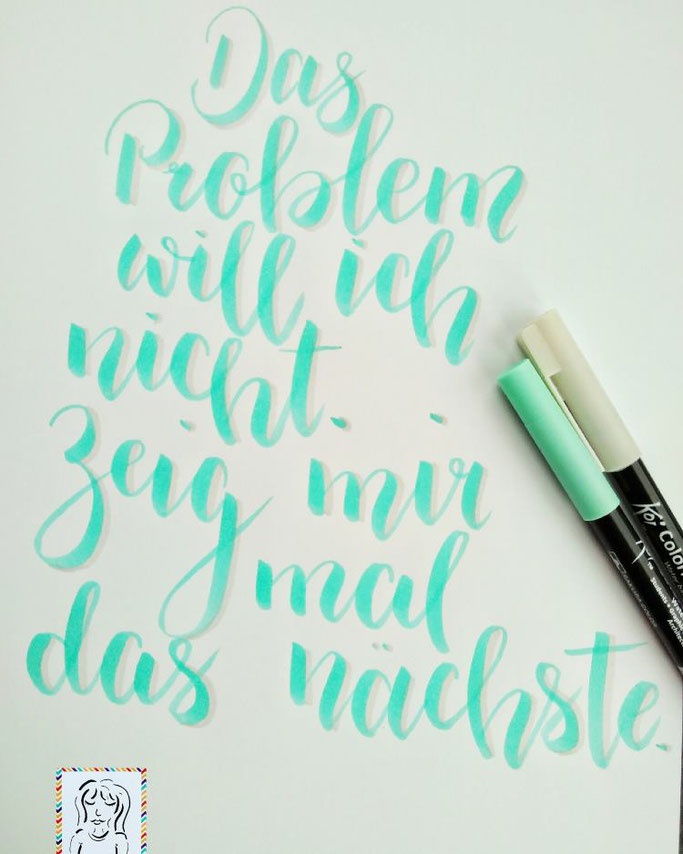 Das
Problem
will ich
nicht.
Zeig mir
mal
das nächste.
Koi Color